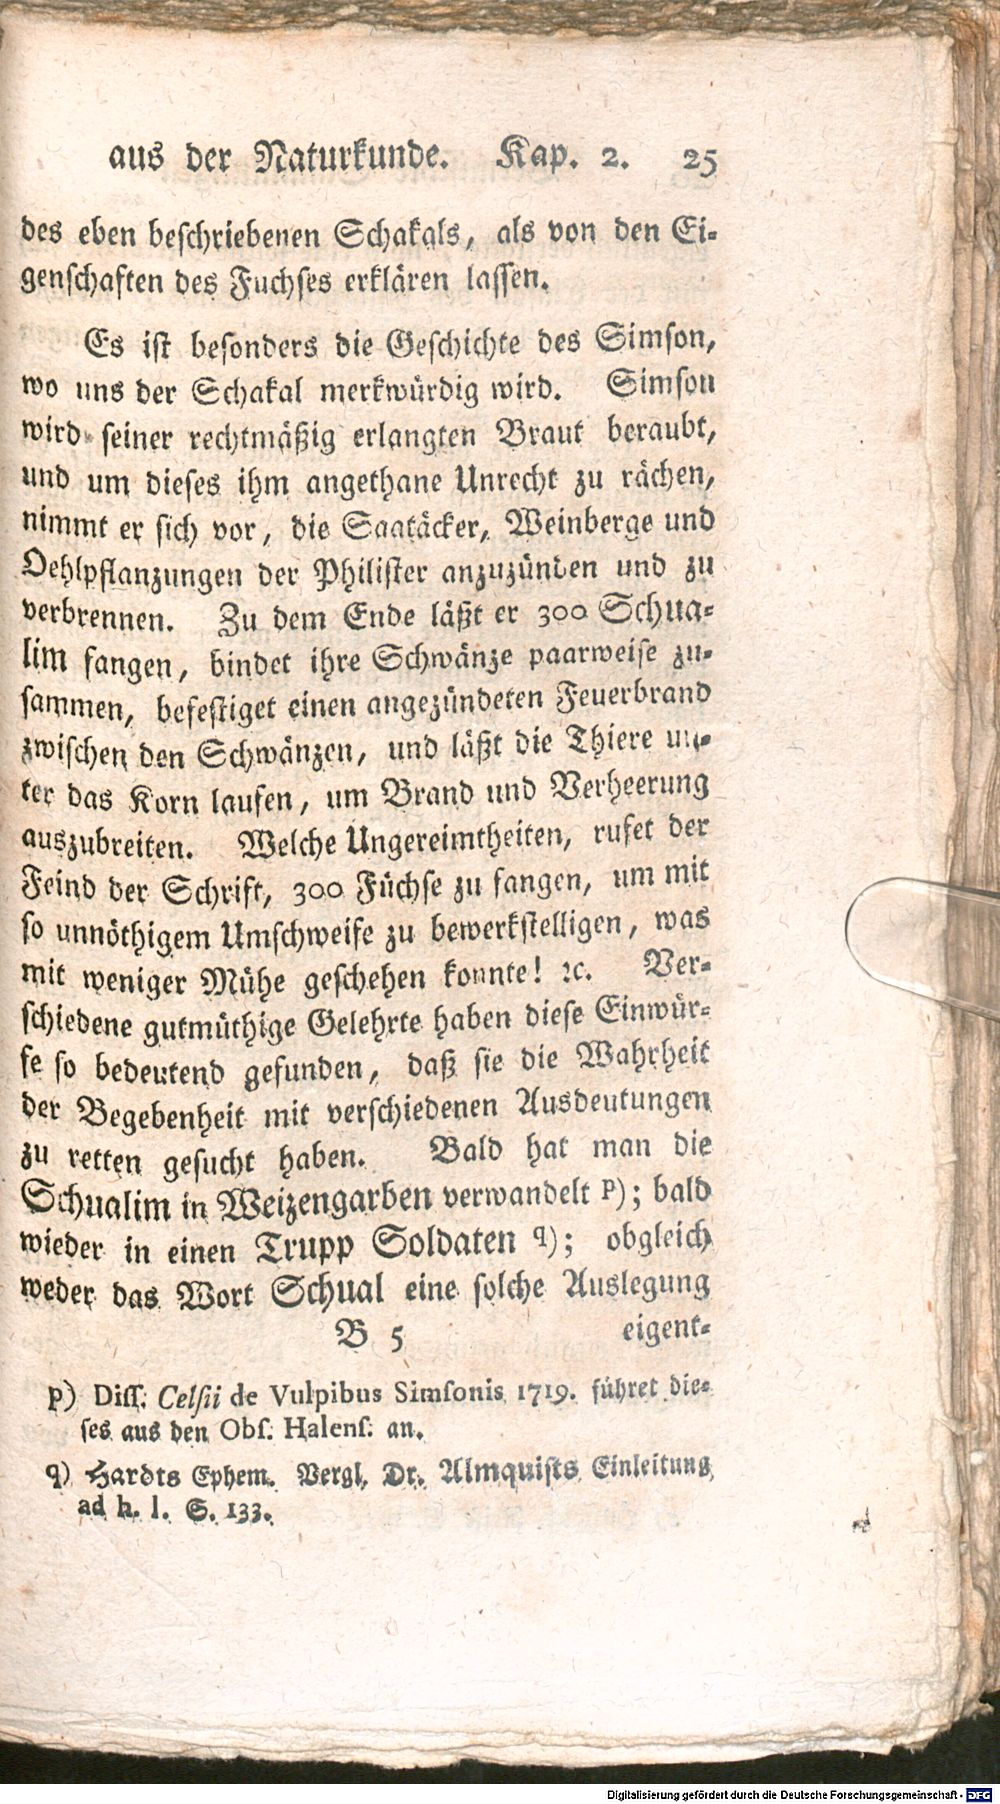 aus der Naturkunde. Kap. 2. 25
des eben beschriebenen Schakals, als von den Ei-
genschaften des Fuchses erklären lassen.
Es ist besonders die Geschichte des Simson,
wo uns der Schakal merkwürdig wird. Simson
wird seiner rechtmäßig erlangten Braut beraubt,
und um dieses ihm angethane Unrecht zu rächen,
nimmt er sich vor, die Saatäcker, Weinberge und
Oehlpflanzungen der Philister anzuzünden und zu
verbrennen. Zu dem Ende läßt er 300 Schua-
lim fangen, bindet ihre Schwänze paarweise zu-
sammen, befestiget einen angezündeten Feuerbrand
zwischen den Schwänzen, und läßt die Thiere un-
ter das Korn laufen, um Brand und Verheerung
auszubreiten. Welche Ungereimtheiten, rufet der
Feind der Schrift, 300 Füchse zu fangen, um mit
so unnöthigem Umschweife zu bewerkstelligen, was
mit weniger Mühe geschehen konnte! ꝛc. Ver-
schiedene gutmüthige Gelehrte haben diese Einwür-
fe so bedeutend gefunden, daß sie die Wahrheit
der Begebenheit mit verschiedenen Ausdeutungen
zu retten gesucht haben. Bald hat man die
Schualim in Weizengarben verwandelt p); bald
wieder in einen Trupp Soldaten q); obgleich
weder das Wort Schual eine solche Auslegung
B 5 eigent-
p) Diss. Celsii de Vulpibus Simsonis 1719. führet die-
ses aus den Obs. Halens. an.
q) Hardts Ephem. Vergl. Dr. Almquists Einleitung
ad h. l. S. 133.
Digitalisierung gefördert durch die Deutsche Forschungsgemeinschaft - DFG